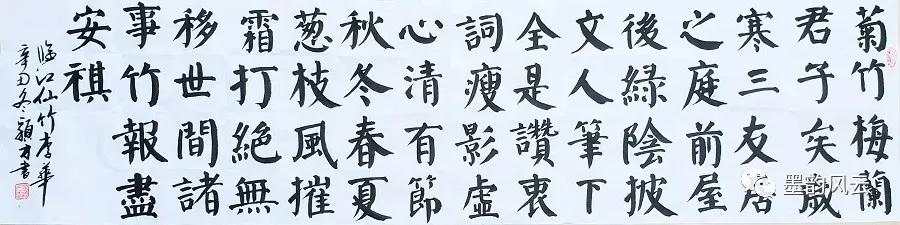 菊竹梅蘭
君子矣歲
寒三友居
之庭前屋
後綠陰披
文人筆下
全是讚衷
詞瘦影虛
心清有節
秋冬春夏
葱枝風摧
霜打絕無
移世間諸
事竹報盡
安祺
临江仙竹李華
辛丑冬書
墨韵风云